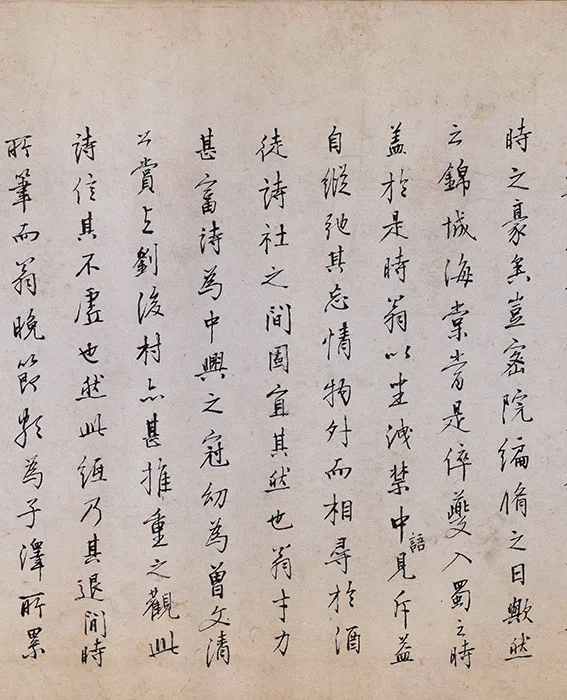 時之豪矣豈密院編脩之日歟然
云錦城海棠當是倅夔入蜀之時
盖於是時翁以坐洩禁中語見斥益
自縱弛其忘情物外而相尋於酒
徒詩社之間固宜其然也翁才力
甚富詩為中興之冠幼為曾文清
公賞与劉後村亦甚推重之觀此
詩信其不虛也然此紙乃其退閒時
所筆而翁晚節頗為子澤所累